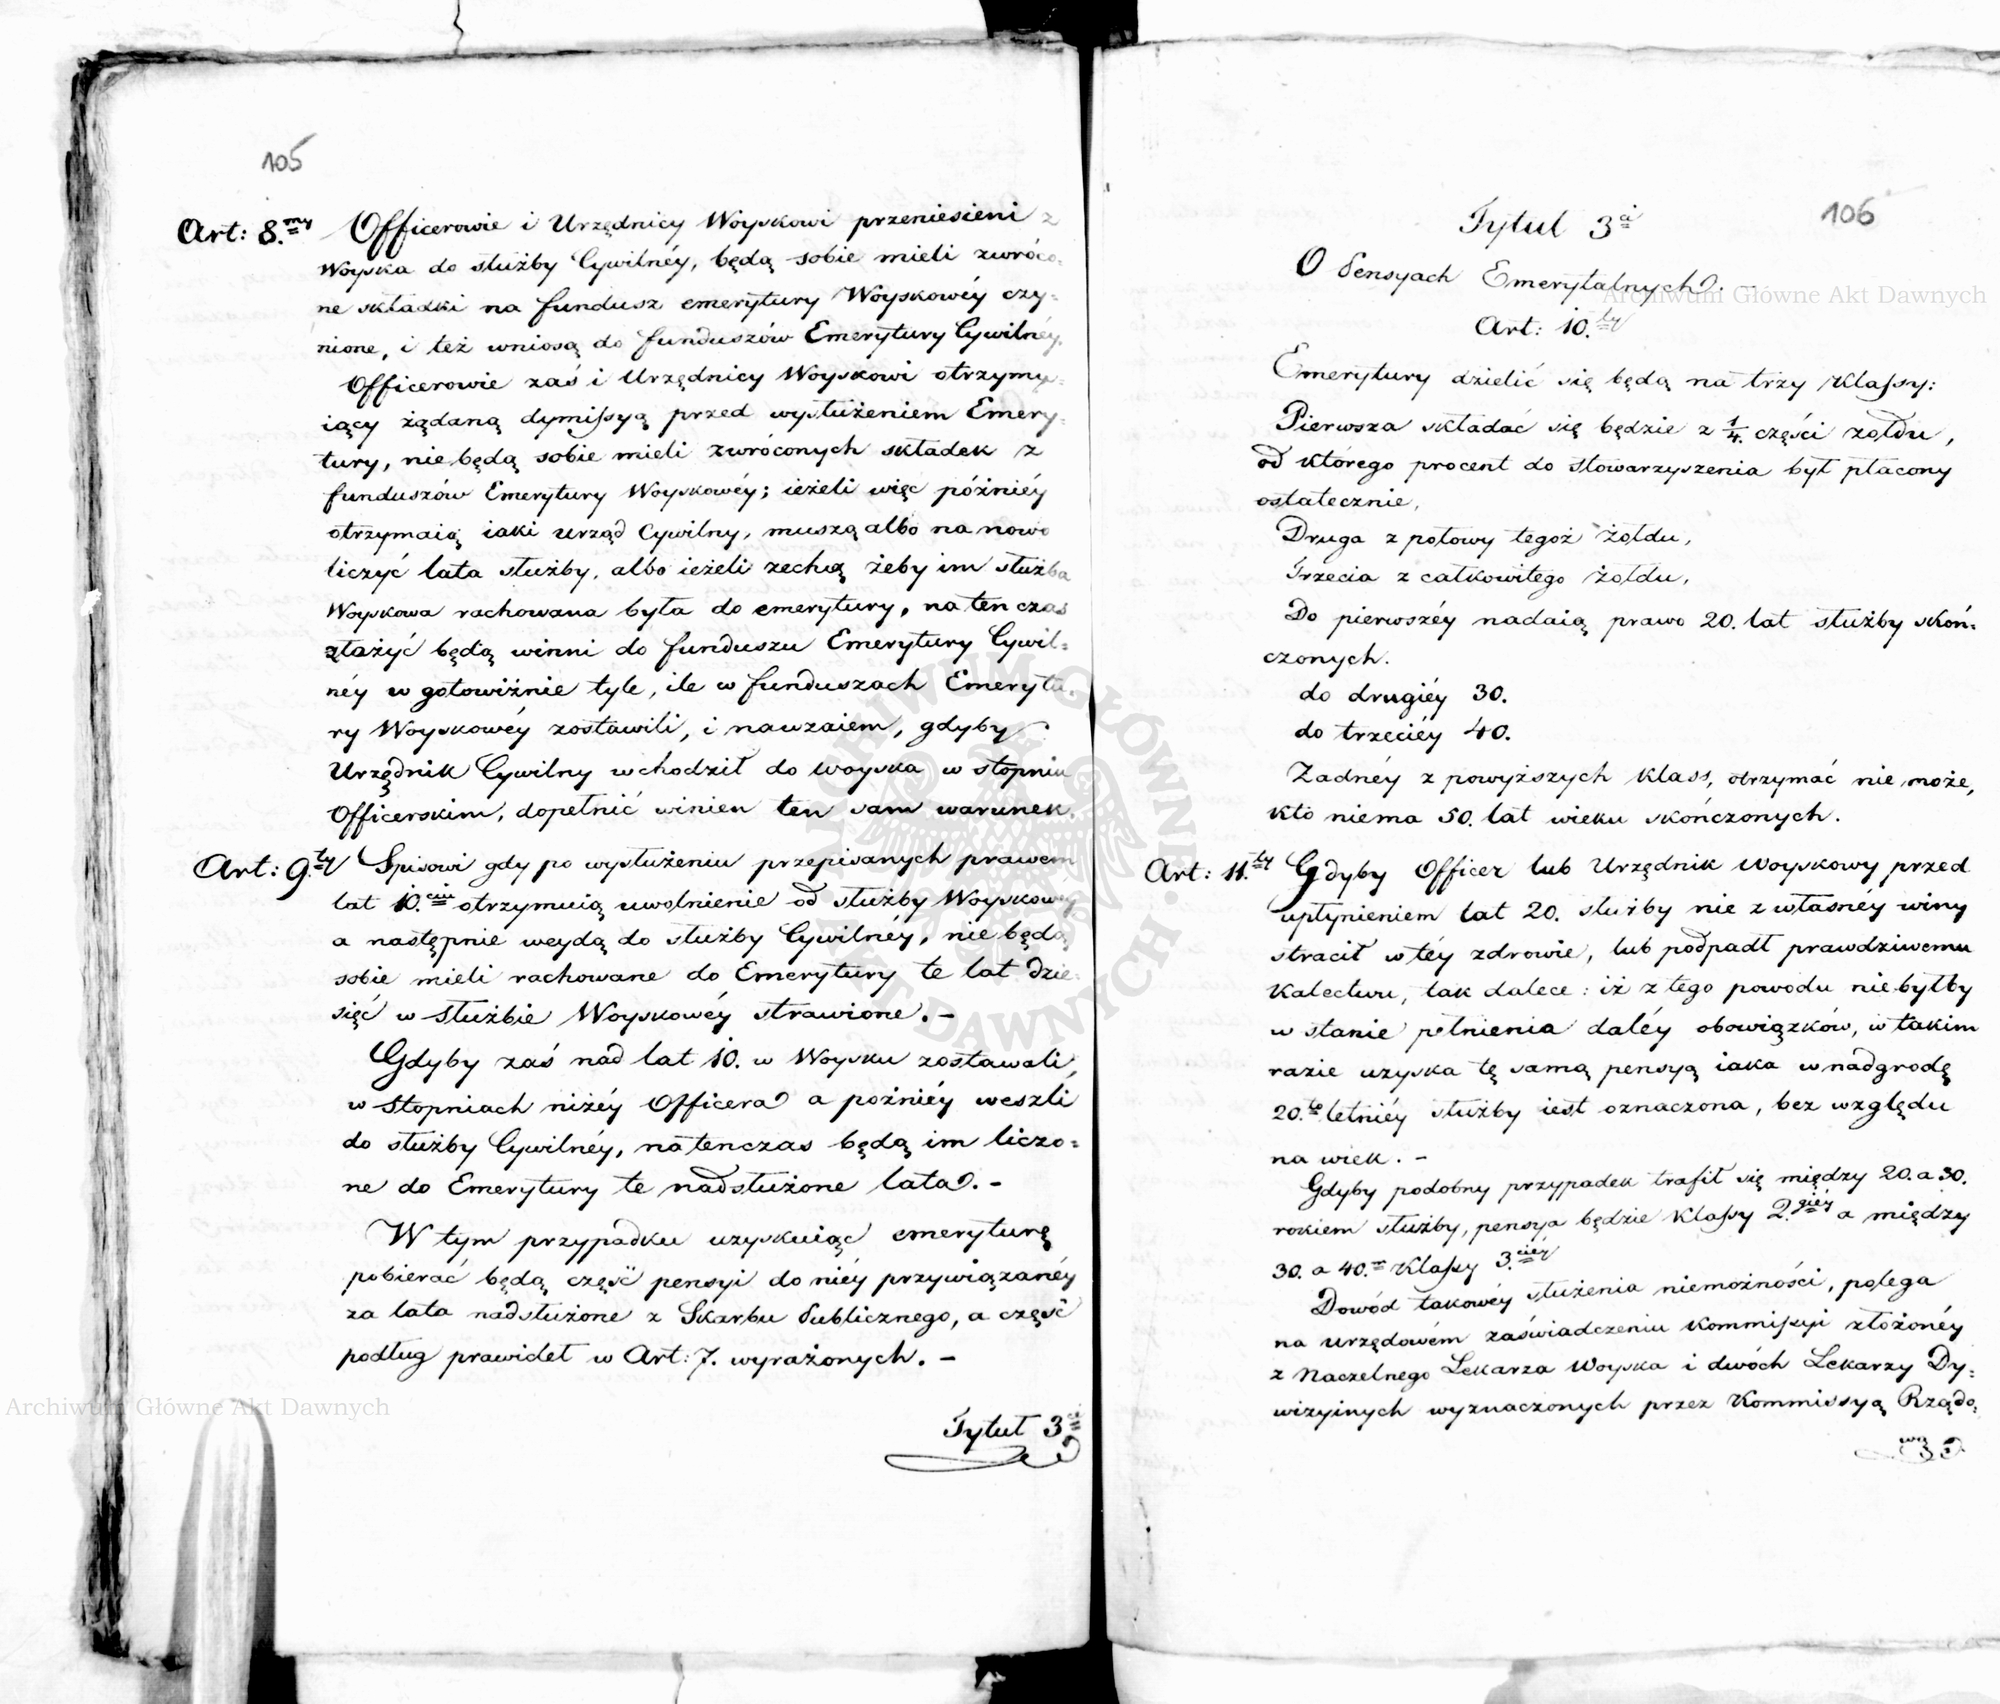 105
Art: 8.my Officerowie i Urzędnicy Woyskowi przeniesieni z
Woyska do służby Cywilnéy, będą sobie mieli zwróco=
ne składki na fundusz emerytury Woyskowéy czy=
nione, i też wniosą do funduszów Emerytury Cywilnéy.
Officerowie zaś i Urzędnicy Woyskowi otrzymu=
iący żądaną dymissyą przed wysłużeniem Emery=
tury, nie będą sobie mieli zwróconych składek z
funduszów Emerytury Woyskowéy; ieżeli więc późniéy
otrzymaią iaki urząd Cywilny, muszą albo na nowo
liczyć lata służby, albo ieżeli zechcą żeby im służba
Woyskowa rachowana była do emerytury, na ten czas
złażyć będą winni do funduszu Emerytury Cywil=
néy w gotowiźnie tyle, ile w funduszach Emerytu=
ry Woyskowéy zostawili, i nawzaiem, gdyby
Urzędnik Cywilny wchodził do woyska w stopniu
Officerskim, dopełnić winien ten sam warunek.
Art: 9.ty Spisowi gdy po wysłużeniu przepisanych prawem
lat 10.ciu otrzymuią uwolnienie od służby Woyskowéy
a następnie weydą do służby Cywilnéy, nie będą
sobie mieli rachowane do Emerytury te lat dzie=
sięć w służbie Woyskowéy strawione. –
Gdyby zaś nad lat 10. w Woysku zostawali,
w stopniach niżéy Officera a pożniéy weszli
do służby Cywilnéy, natenczas będą im liczo=
ne do Emerytury te nadsłużone lata. –
W tym przypadku uzyskuiąc emeryturę
pobierać będą część pensyi do niéy przywiązanéy
za lata nadsłużone z Skarbu Publicznego, a część
podług prawideł w Art: 7. wyrażonych. –
Tytuł 3ci
106
Tytuł 3ci
O Pensyach Emerytalnych. –
Art: 10.ty
Emerytury dzielić się będą na trzy Klassy:
Pierwsza składać się będzie z 1/4. części żołdu,
od którego procent do stowarzyszenia był płacony
ostatecznie,
Druga z połowy tegoż żołdu,
Trzecia z całkowitego żołdu,
Do pierwszéy nadaią prawo 20. lat służby skoń=
czonych.
do drugiéy 30.
do trzeciéy 40.
Żadnéy z powyższych klass, otrzymać nie może,
kto niema 50. lat wieku skończonych.
Art: 11.ty Gdyby Officer lub Urzędnik Woyskowy przed
upłynieniem lat 20. służby nie z własnéy winy
stracił w téy zdrowie, lub podpadł prawdziwemu
kalectwu, tak dalece: iż z tego powodu nie byłby
w stanie pełnienia daléy obowiązków, w takim
razie uzyska tę samą pensyą iaka w nadgrodę
20.to letniéy służby iest oznaczona, bez względu
na wiek. –
Gdyby podobny przypadek trafił się między 20. a 30.
rokiem służby, pensya będzie Klassy 2.giéy a między
30. a 40.m Klassy 3.ciéy
Dowód takowéy służenia niemożności, polega
na urzędowém zaświadczeniu Kommissyi złożonéy
z Naczelnego Lekarza Woyska i dwóch Lekarzy Dy=
wizyinych wyznaczonych przez Kommissyą Rządo=
wą
Archiwum Główne Akt Dawnych
Archiwum Główne Akt Dawnych
ARCHIWUM GŁÓWNE AKT DAWNYCH